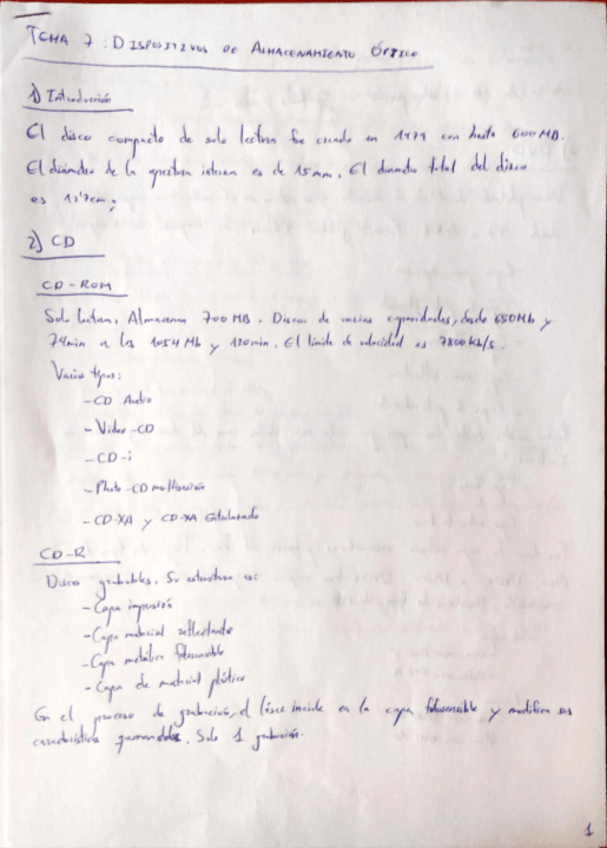 TEMA 7: DISPOSITIVOS DE ALMACENAMIENTO ÓPTICO
1) Introducción
El disco compacto de solo lectura fue creado en 1979 con hasta 600 MB.
El diámetro de la apertura interna es de 15mm. El diámetro total del disco
es 12cm.
2) CD
CD-ROM
Solo lectura. Almacena 700 MB. Discos de varias capacidades, desde 650Mb y
74min a los 1054 Mb y 120min. El límite de velocidad es 7800 kb/s.
Varios tipos:
- CD Audio
- Video-CD
- CD-i
- Photo-CD multisesión
- CD-XA y CD-XA Entrelazado
CD-R
Discos grabables. Su estructura es:
- Capa impresión
- Capa material reflectante
- Capa metálica fotosensible
- Capa de material plástico
En el proceso de grabación, el láser incide en la capa fotosensible y modifica sus
características quemandolas. Solo 1 grabación.
1